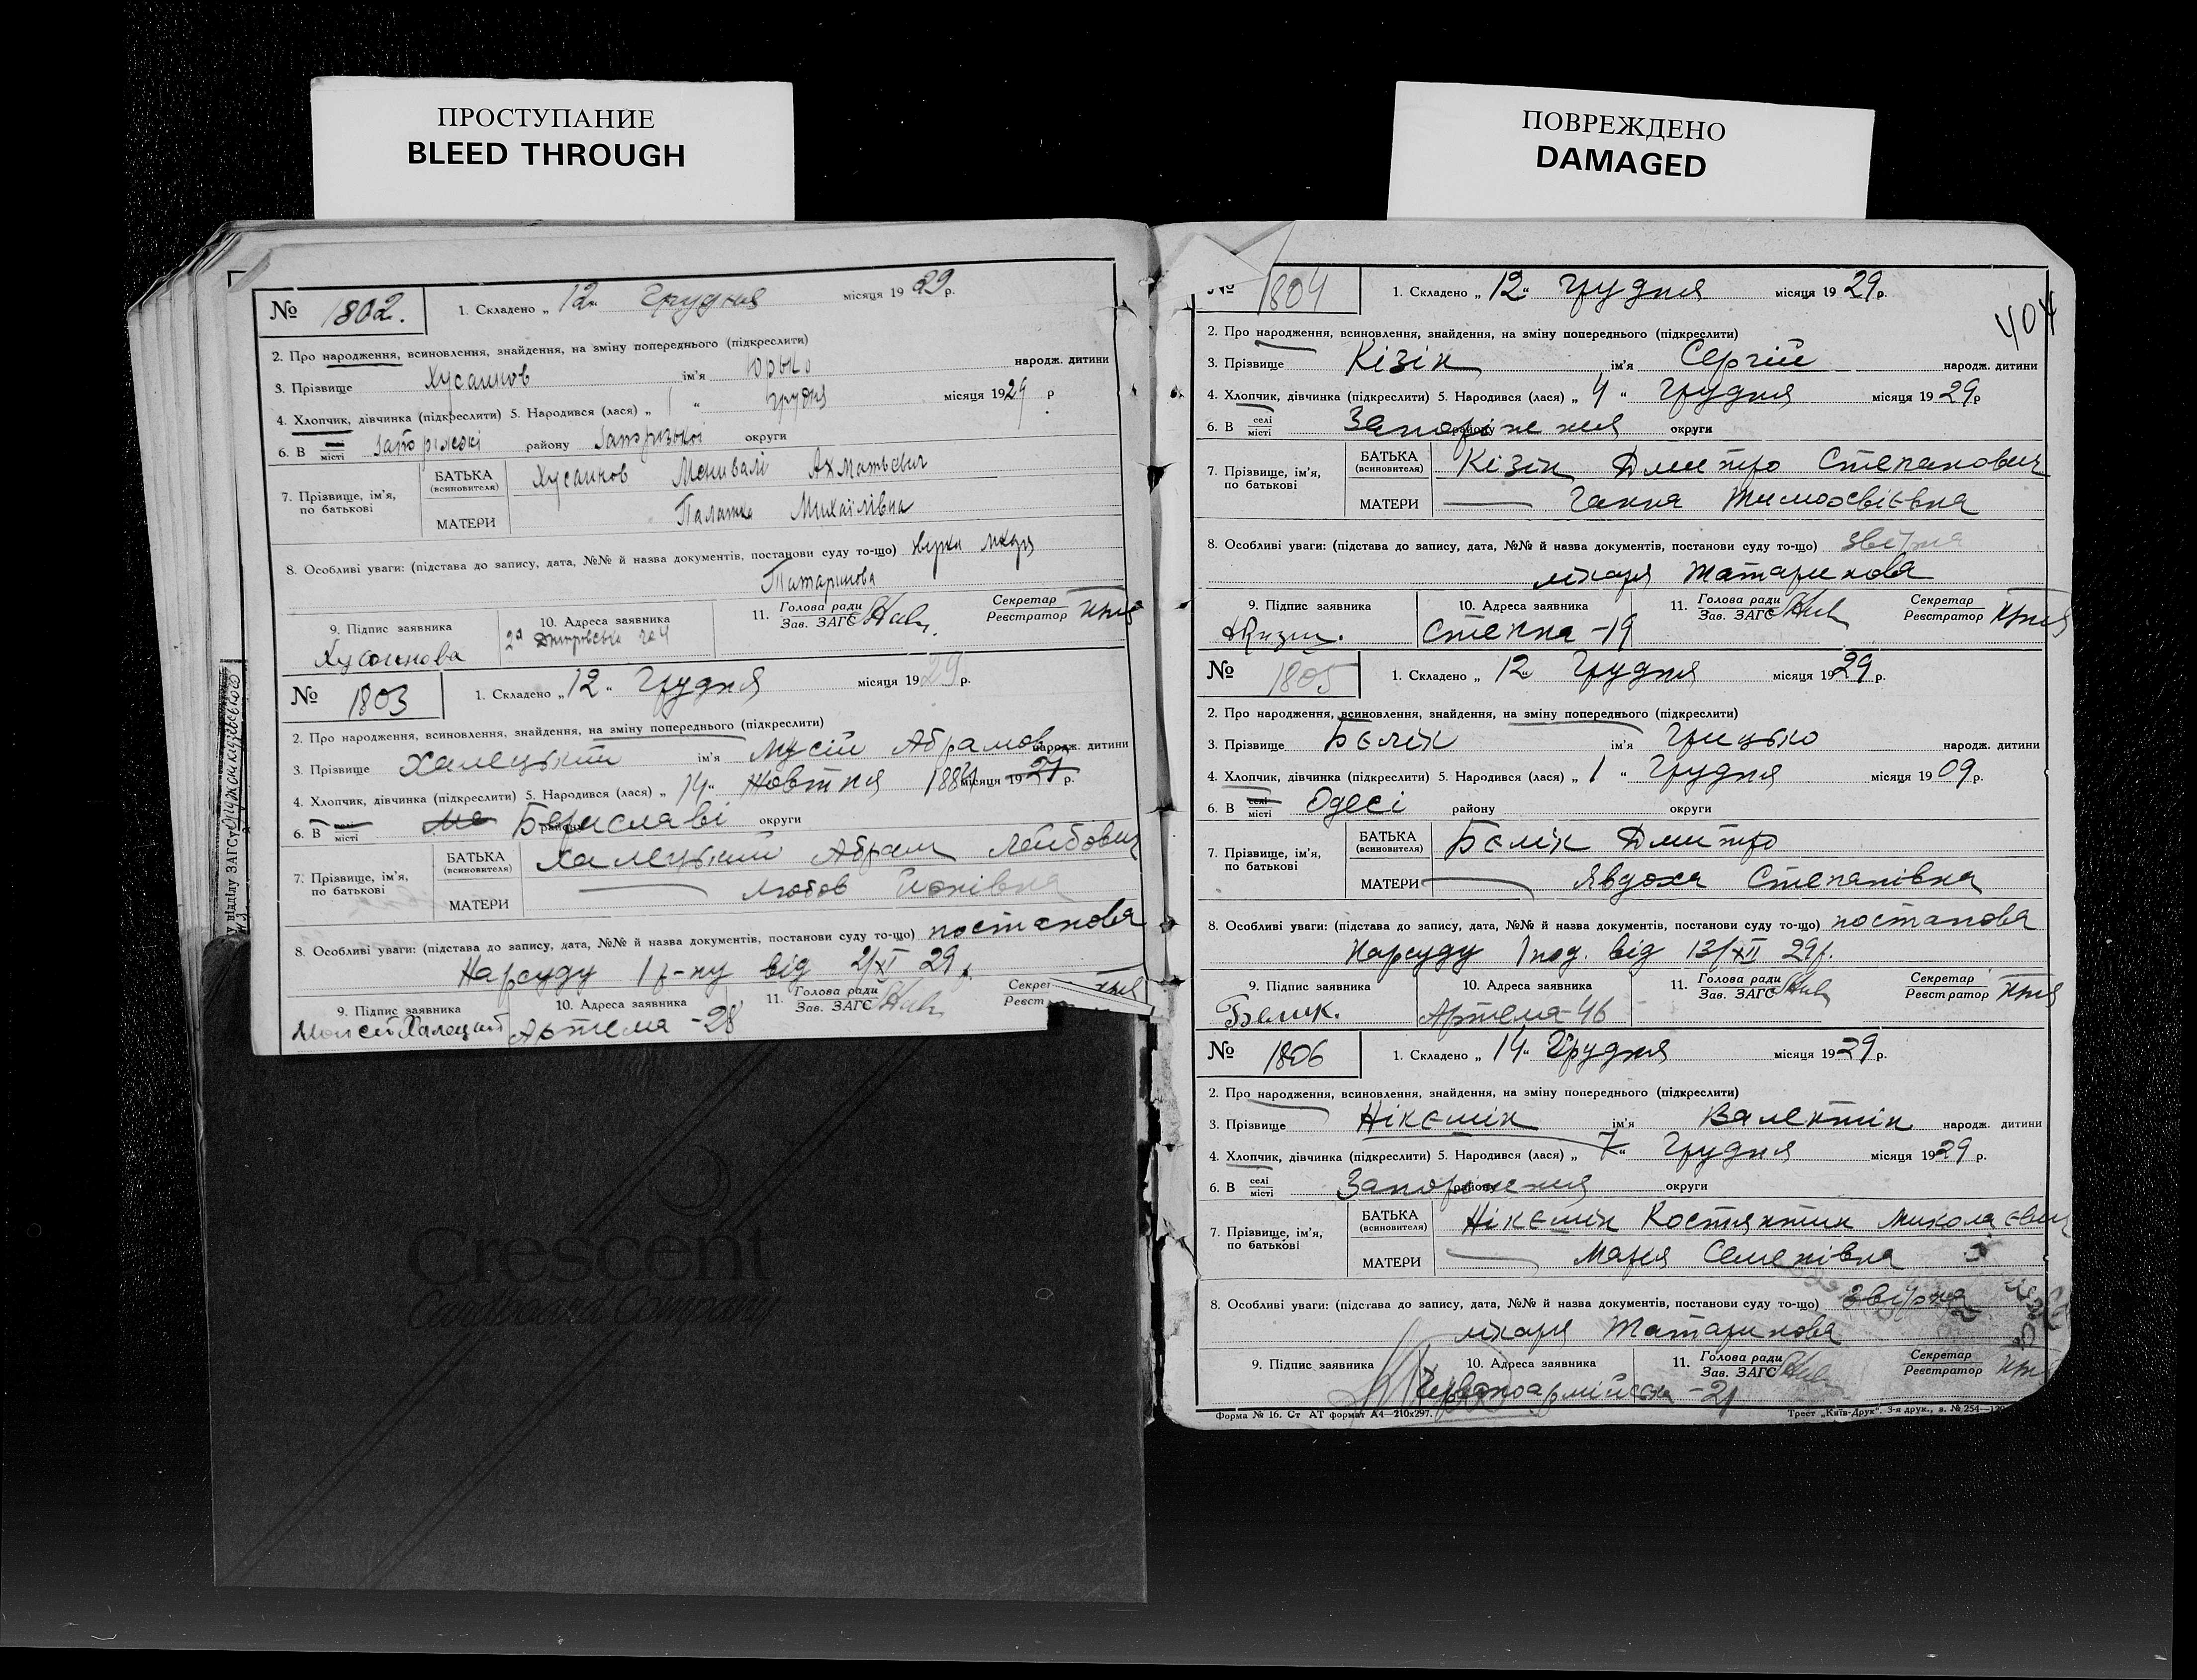 ПРОСТУПАНИЕ
BLEED THROUGH
ПОВРЕЖДЕНО
DAMAGED
№ 1802. 1. Складено „12“ Грудня місяця 1929 р.
2. Про народження, всиновлення, знайдення, на зміну попереднього (підкреслити)
3. Прізвище Хусаинов ім'я Юрько народж. дитини
4. Хлопчик, дівчинка (підкреслити) 5. Народився (лася) „1“ Грудня місяця 1929 р
6. В місті Запоріжжі району Запорізької округи
7. Прізвище, ім'я, по батькові
БАТЬКА (всиновителя) Хусаинов Ахматьевич
МАТЕРИ Палажка Михайлівна
8. Особливі уваги: (підстава до запису, дата, №№ й назва документів, постанови суду то-що)
Татаринова
9. Підпис заявника 10. Адреса заявника 11. Голова ради Зав. ЗАГС Секретар Реєстратор
Хусаинова 2а Дніпровська
№ 1803 1. Складено „12“ Грудня місяця 1929 р.
2. Про народження, всиновлення, знайдення, на зміну попереднього (підкреслити)
3. Прізвище Халецький ім'я Мусій Абрамов народж. дитини
4. Хлопчик, дівчинка (підкреслити) 5. Народився (лася) „14“ Жовтня місяця 19 р.
6. В селі місті Бериславі району округи
7. Прізвище, ім'я, по батькові
БАТЬКА (всиновителя) Халецький Абрам Лейбович
МАТЕРИ — Любов
8. Особливі уваги: (підстава до запису, дата, №№ й назва документів, постанови суду то-що) постанова
Нарсуду 1 р-ну від 2/XI 29 р.
9. Підпис заявника 10. Адреса заявника 11. Голова ради Зав. ЗАГС Секрет Реєст
Моисей Халецкий Артема-28
у відділу ЗАГСу
№ 1804 1. Складено „12“ Грудня місяця 1929 р.
404
2. Про народження, всиновлення, знайдення, на зміну попереднього (підкреслити)
3. Прізвище Кізін ім'я Сергій народж. дитини
4. Хлопчик, дівчинка (підкреслити) 5. Народився (лася) „4“ Грудня місяця 1929 р
6. В селі місті Запоріжжя району округи
7. Прізвище, ім'я, по батькові
БАТЬКА (всиновителя) Кізін Дмитро Степанович
МАТЕРИ — Ганна Тимофвієвна
8. Особливі уваги: (підстава до запису, дата, №№ й назва документів, постанови суду то-що)
лікаря Татаринова
9. Підпис заявника 10. Адреса заявника 11. Голова ради Зав. ЗАГС Секретар Реєстратор
Степна-19
№ 1805 1. Складено „12“ Грудня місяця 1929 р.
2. Про народження, всиновлення, знайдення, на зміну попереднього (підкреслити)
3. Прізвище Бєлік ім'я Грицько народж. дитини
4. Хлопчик, дівчинка (підкреслити) 5. Народився (лася) „1“ Грудня місяця 1909 р.
6. В селі місті Одесі району округи
7. Прізвище, ім'я, по батькові
БАТЬКА (всиновителя) Бєлік Дмитро
МАТЕРИ — Явдоха Степанівна
8. Особливі уваги: (підстава до запису, дата, №№ й назва документів, постанови суду то-що) постанова
Нарсуду від 13/XII 29 р.
9. Підпис заявника 10. Адреса заявника 11. Голова ради Зав. ЗАГС Секретар Реєстратор
Белик. Артема-46
№ 1806 1. Складено „14“ Грудня місяця 1929 р.
2. Про народження, всиновлення, знайдення, на зміну попереднього (підкреслити)
3. Прізвище Нікємін ім'я Валентін народж. дитини
4. Хлопчик, дівчинка (підкреслити) 5. Народився (лася) „7“ Грудня місяця 1929 р.
6. В селі місті Запоріжжя району округи
7. Прізвище, ім'я, по батькові
БАТЬКА (всиновителя) Нікємін Костянтин Миколаєвич
МАТЕРИ — Марія Семенівна
8. Особливі уваги: (підстава до запису, дата, №№ й назва документів, постанови суду то-що)
лікаря Татаринова
9. Підпис заявника 10. Адреса заявника 11. Голова ради Зав. ЗАГС Секретар Реєстратор
Червоноармійська -21
Форма № 16. Ст АТ формат А4—210х297. Трест „Київ-Друк“. 3-я друк., в. № 254
Crescent
Cardboard Company